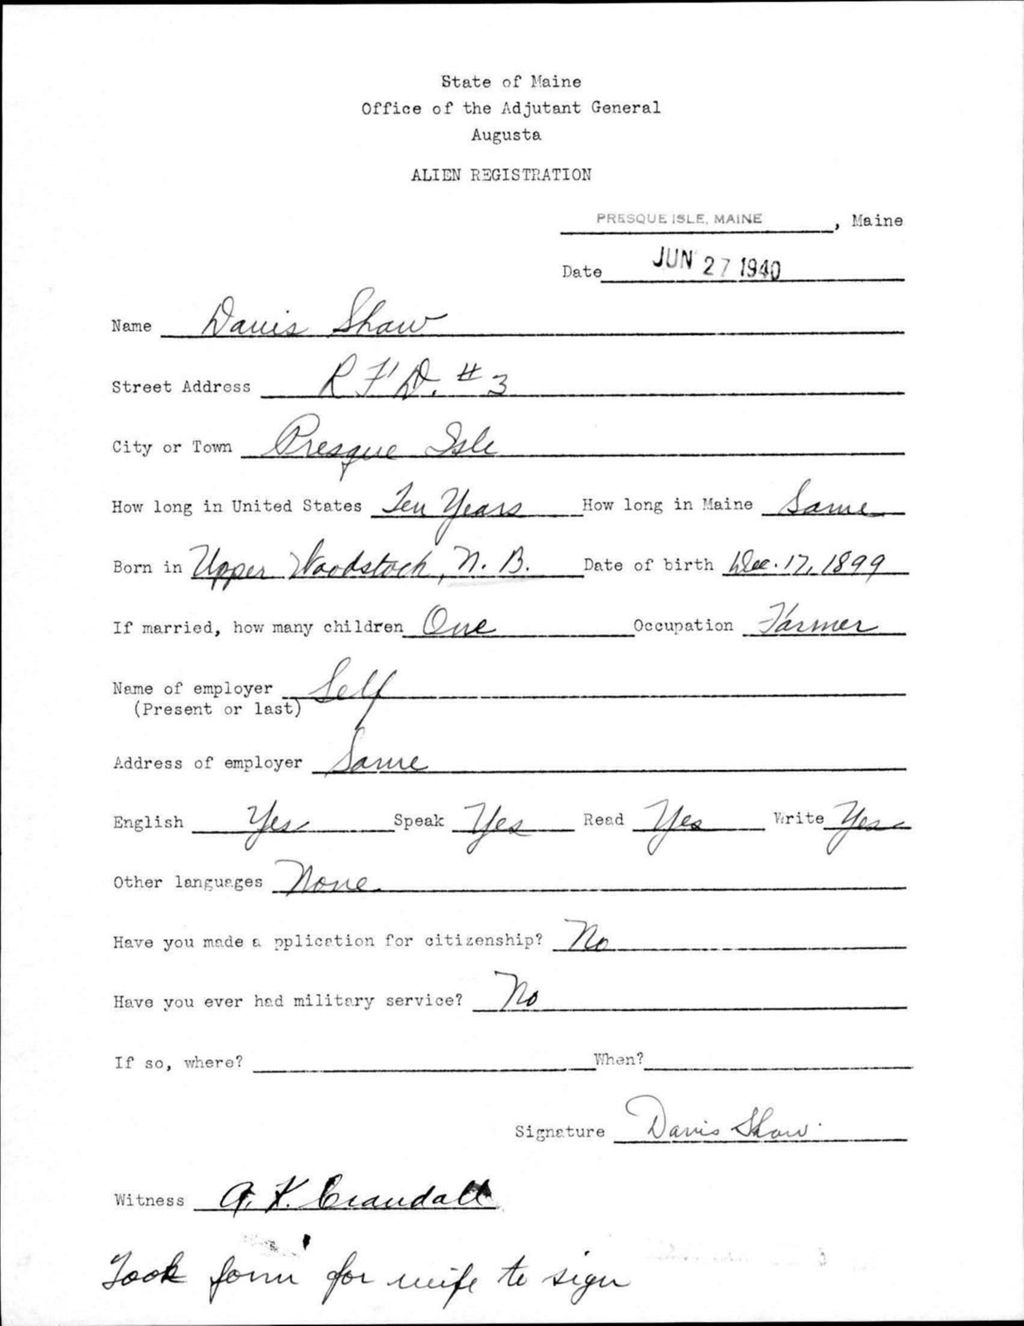 State of Maine
Office of the Adjutant General
Augusta
ALIEN REGISTRATION
PRESQUE ISLE, MAINE, Maine
Date JUN 27 1940
Name Davis Shaw
Street Address R.F.D. #3
City or Town Presque Isle
How long in United States Ten Years How long in Maine Same
Born in Upper Woodstock, N. B. Date of birth Dec. 17, 1899
If married, how many children One Occupation Farmer
Name of employer Self
(Present or last)
Address of employer Same
English Yes Speak Yes Read Yes Write Yes
Other languages None
Have you made a pplication for citizenship? No
Have you ever had military service? No
If so, where? When?
Signature Davis Shaw
Witness A. K. Crandall
Took form for wife to sign